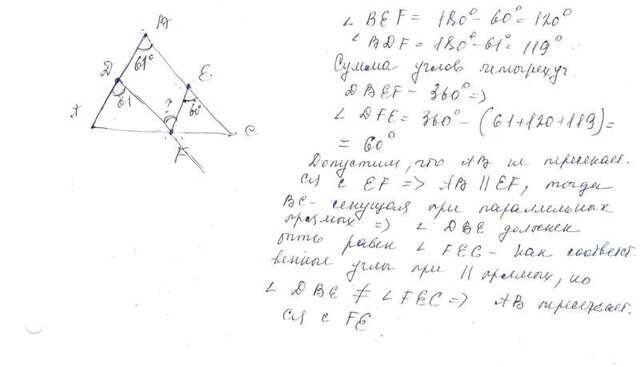 B
61°
D
E
61
?
60°
A
F
C
∠ BEF = 180° - 60° = 120°
∠ BDF = 180° - 61° = 119°
Сумма углов четырехуг.
DBEF - 360° =>
∠ DFE = 360° - (61+120+119) =
= 60°
Допустим, что AB не пересекает-
ся с EF => AB || EF, тогда
BE - секущая при параллельных
прямых => ∠ DBE должен
быть равен ∠ FEC - как соответст-
венные углы при || прямых, но
∠ DBE ≠ ∠ FEC => AB пересекает-
ся с FE